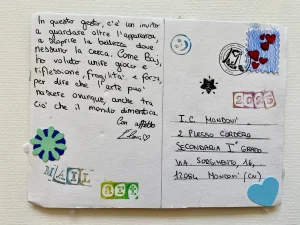 In questo gesto, c'è un invito
a guardare oltre l'apparenza,
a scoprire la bellezza dove
nessuno la cerca. Come Baj,
ho voluto unire gioco e
riflessione, fragilità e forza,
per dire che l'arte può
nascere ovunque, anche tra
ciò che il mondo dimentica.
Con affetto
MAIL
art
2025
I.C. MONDOVI'
2 PLESSO CORDERO
SECONDARIA I° GRADO
VIA SORGINETO, 16,
12084 MONDOVI' (CN)